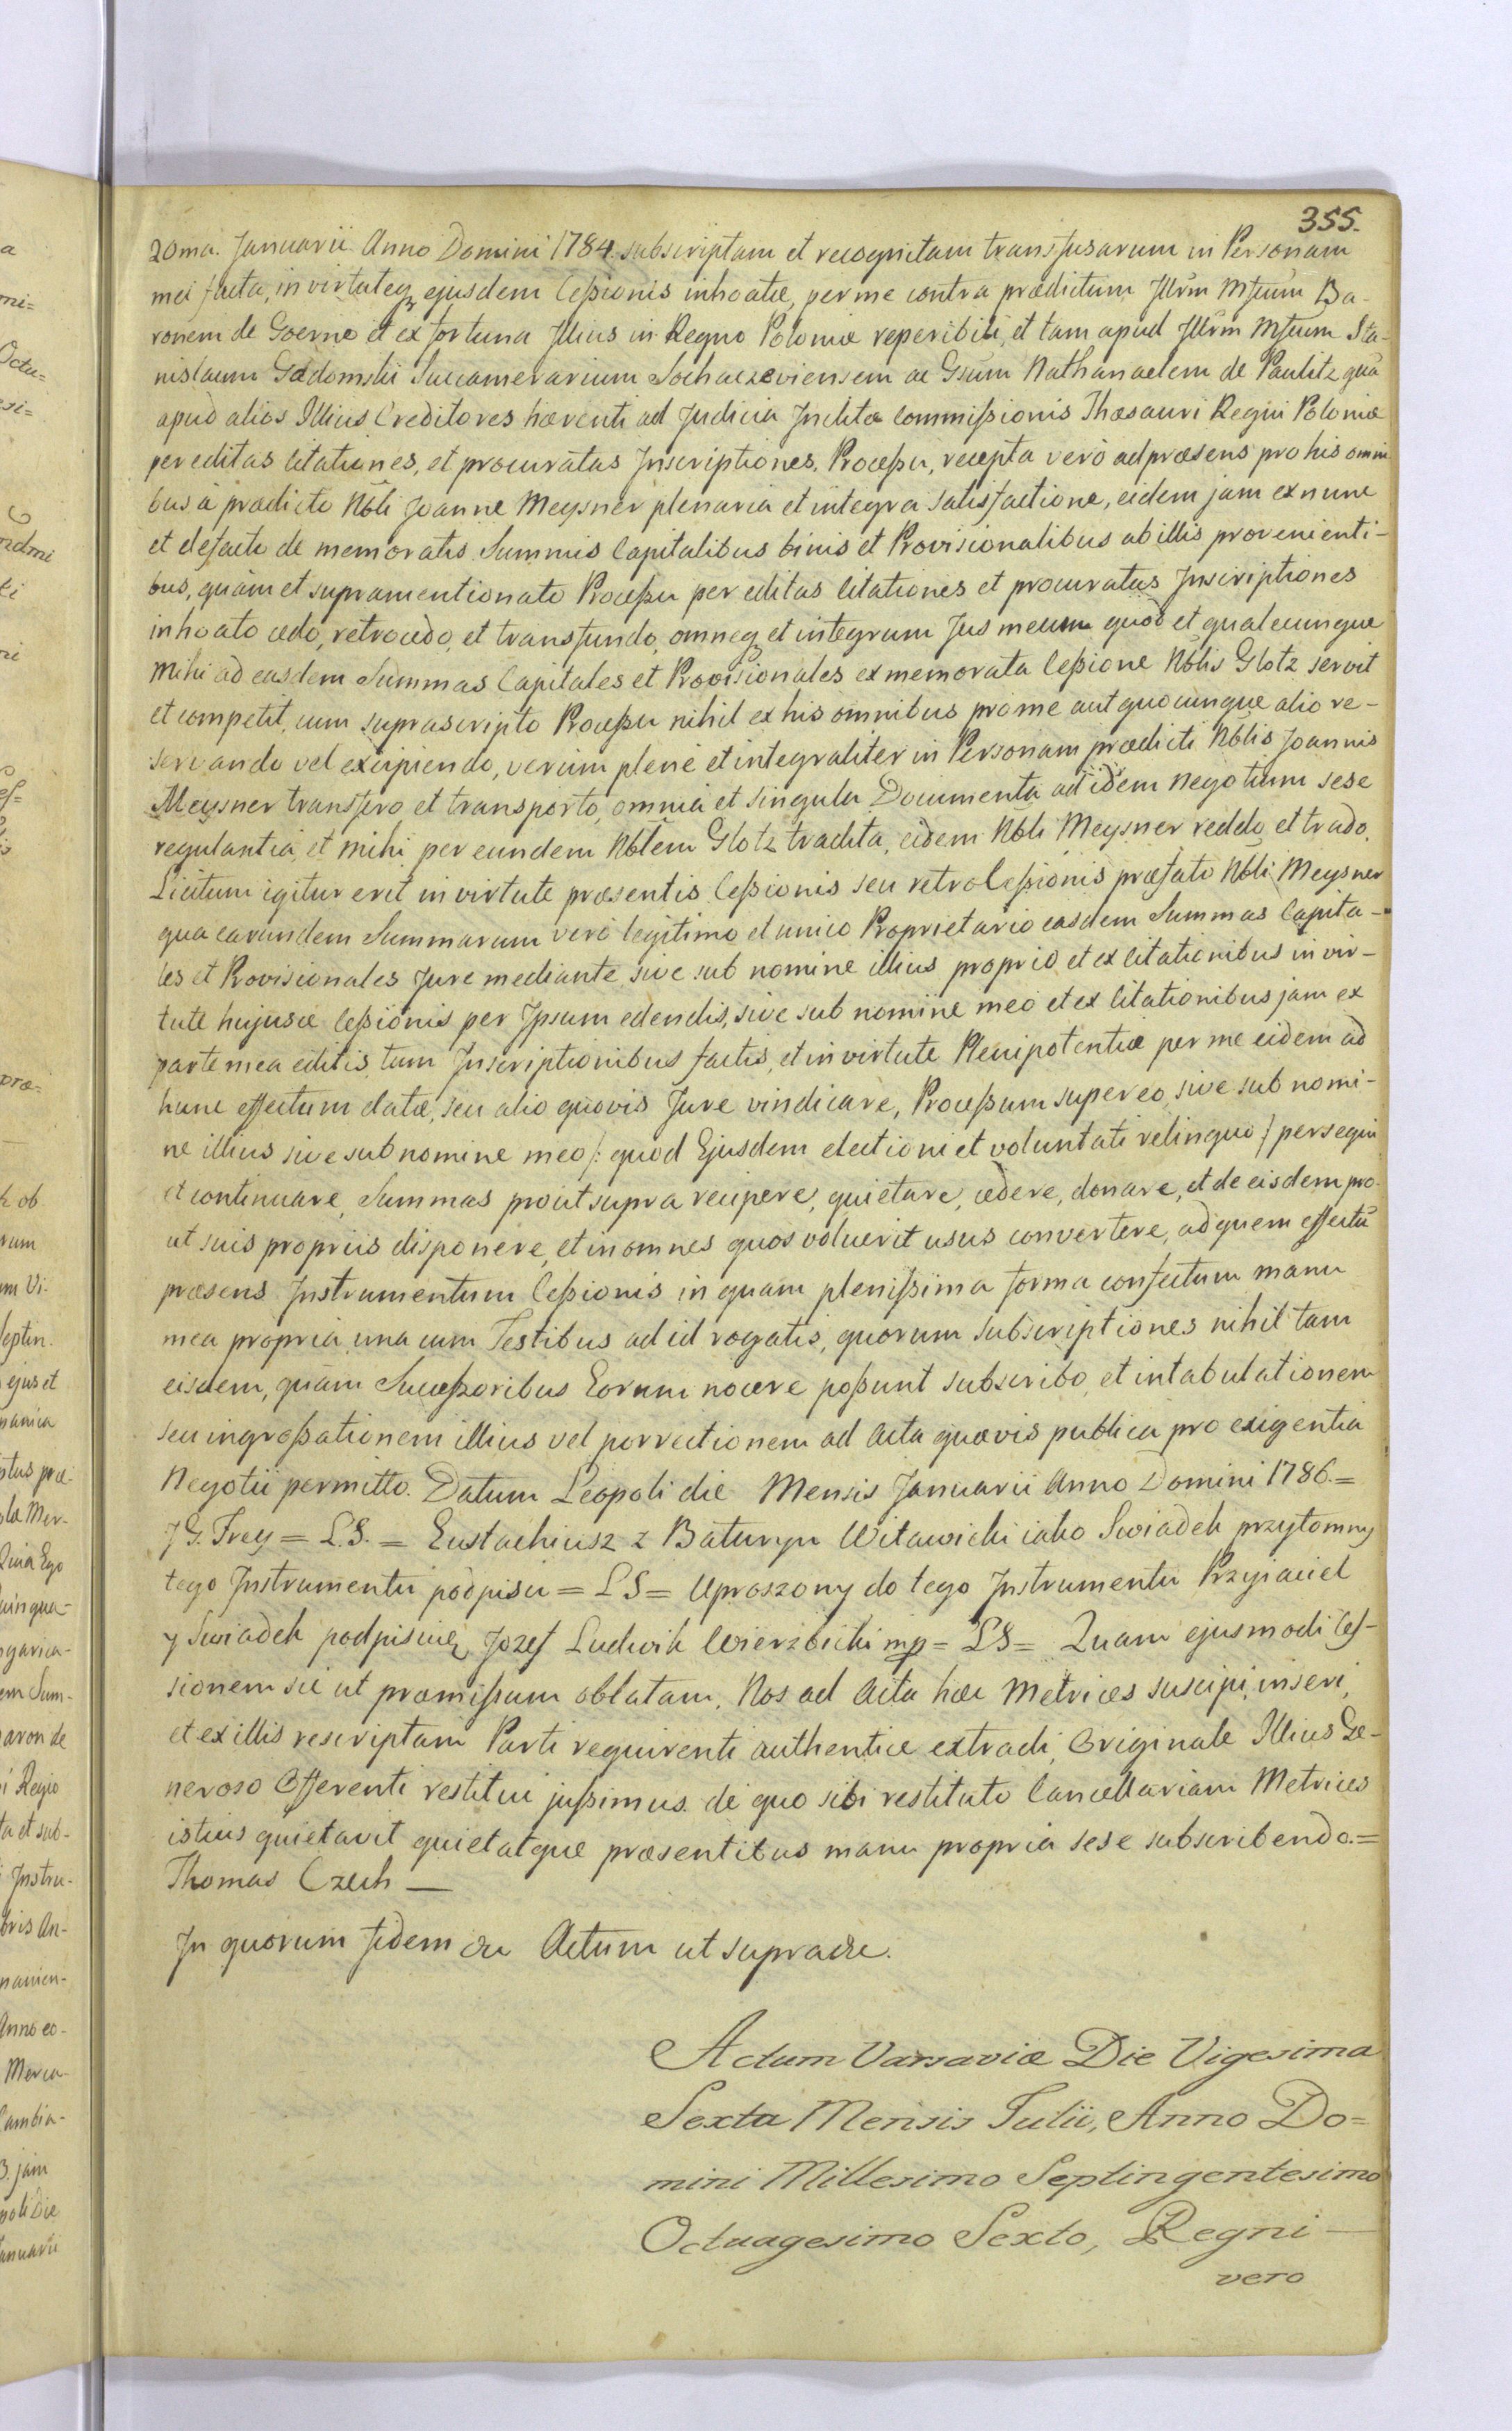 355.
20ma. Januarii Anno Domini 1784. subscriptam et recognitam transfusarum in Personam
mei facta, in virtuteq ejusdem Cessionis inhoatæ, per me contra prædictum Illrm Mfcum Ba-
ronem de Goerne et ex fortuna Illius in Regno Poloniæ reperibili, et tam apud Illrm Mfcum Sta-
nislaum Gadomski Succamerarium Sochaczeviensem ac Gsum Nathanaelem de Paulitz quā
apud alios Illius Creditores hærenti ad Judicia Inclitæ Commissionis Thæsauri Regni Poloniæ
per editas Citationes, et procuratas Inscriptiones. Processu, recepta verò ad præsens pro his omni
bus à prædicto Nbli Joanne Meysner plenaria et integra satisfactione, eidem jam ex nunc
et defacto de memoratis Summis Capitalibus binis et Provisionalibus ab illis provenienti-
bus, quàm et supramentionato Processu per editas Citationes et procuratas Inscriptiones
inhoato cedo, retrocedo, et transfundo, omneq et integrum Jus meum quod et qualecunque
Mihi ad easdem Summas Capitales et Provisionales ex memorata Cessione Nblis Glotz servit
et competit, cum suprascripto Processu nihil ex his omnibus pro me aut quocunque alio re-
servando vel excipiendo, verùm plenè et integraliter in Personam prædicti Nblis Joannis
Meysner transfero et transporto, omnia et singula Documenta ad idem negotium sese
regulantia, et mihi per eundem Nblem Glotz tradita, eidem Nbli Meysner reddo et trado.
Licitum igitur erit in virtute præsentis Cessionis seu retroCessionis præfato Nbli Meysner
qua earundem Summarum verò legitimo et unico Proprietario easdem Summas Capita-
les et Provisionales Jure mediante, sive sub nomine illius proprio et ex Citationibus in vir-
tute hujusce Cessionis per Ipsum edendis, sive sub nomine meo et ex Citationibus jam ex
parte mea editis, tum Inscriptionibus factis, et in virtute Plenipotentiæ per me eidem ad
hunc effectum datæ, seu alio quovis Jure vindicare, Processum super eo, sive sub nomi-
ne illius sive sub nomine meo /: quod Ejusdem electioni et voluntati relinquo / persequi
et continuare, Summas prout supra recipere, quietare, cedere, donare, et de eisdem pro-
ut suis propriis disponere, et in omnes quos voluerit usus convertere, ad quem effectū
præsens Instrumentum Cessionis in quam plenissima forma confectum manu
mea propria, una cum Testibus ad id rogatis, quorum subscriptiones nihil tam
eisdem, quàm Successoribus Eorum nocere possunt subscribo, et intabulationem
seu ingrossationem illius vel porrectionem ad Acta quævis publica pro exigentia
Negotii permitto. Datum Leopoli die Mensis Januarii Anno Domini 1786. =
J G. Frey = L.S. = Eustachiusz z Baturyn Witawicki iako Swiadek przytomny
tego Instrumentu podpisu = LS = Uproszony do tego Instrumentu Przyiaciel
y Swiadek podpisuię Jozef Ludwik Wierzbicki mp = LS = Quam ejusmodi Ces-
sionem sic ut præmissum oblatam, Nos ad Acta hæc Metrices suscipi, inseri,
et ex illis rescriptam Parti requirenti authentice extradi, Originale Illius Ge-
neroso Offerenti restitui jussimus. de quo sibi restituto Cancellariam Metrices
istius quietavit quietatque præsentibus manu propria sese subscribendo. =
Thomas Czech —
In quorum fidem &c Actum ut supra &c.
Actum Varsaviæ Die Vigesima
Sexta Mensis Julii, Anno Do=
mini Millesimo Septingentesimo
Octuagesimo Sexto, Regni —
vero